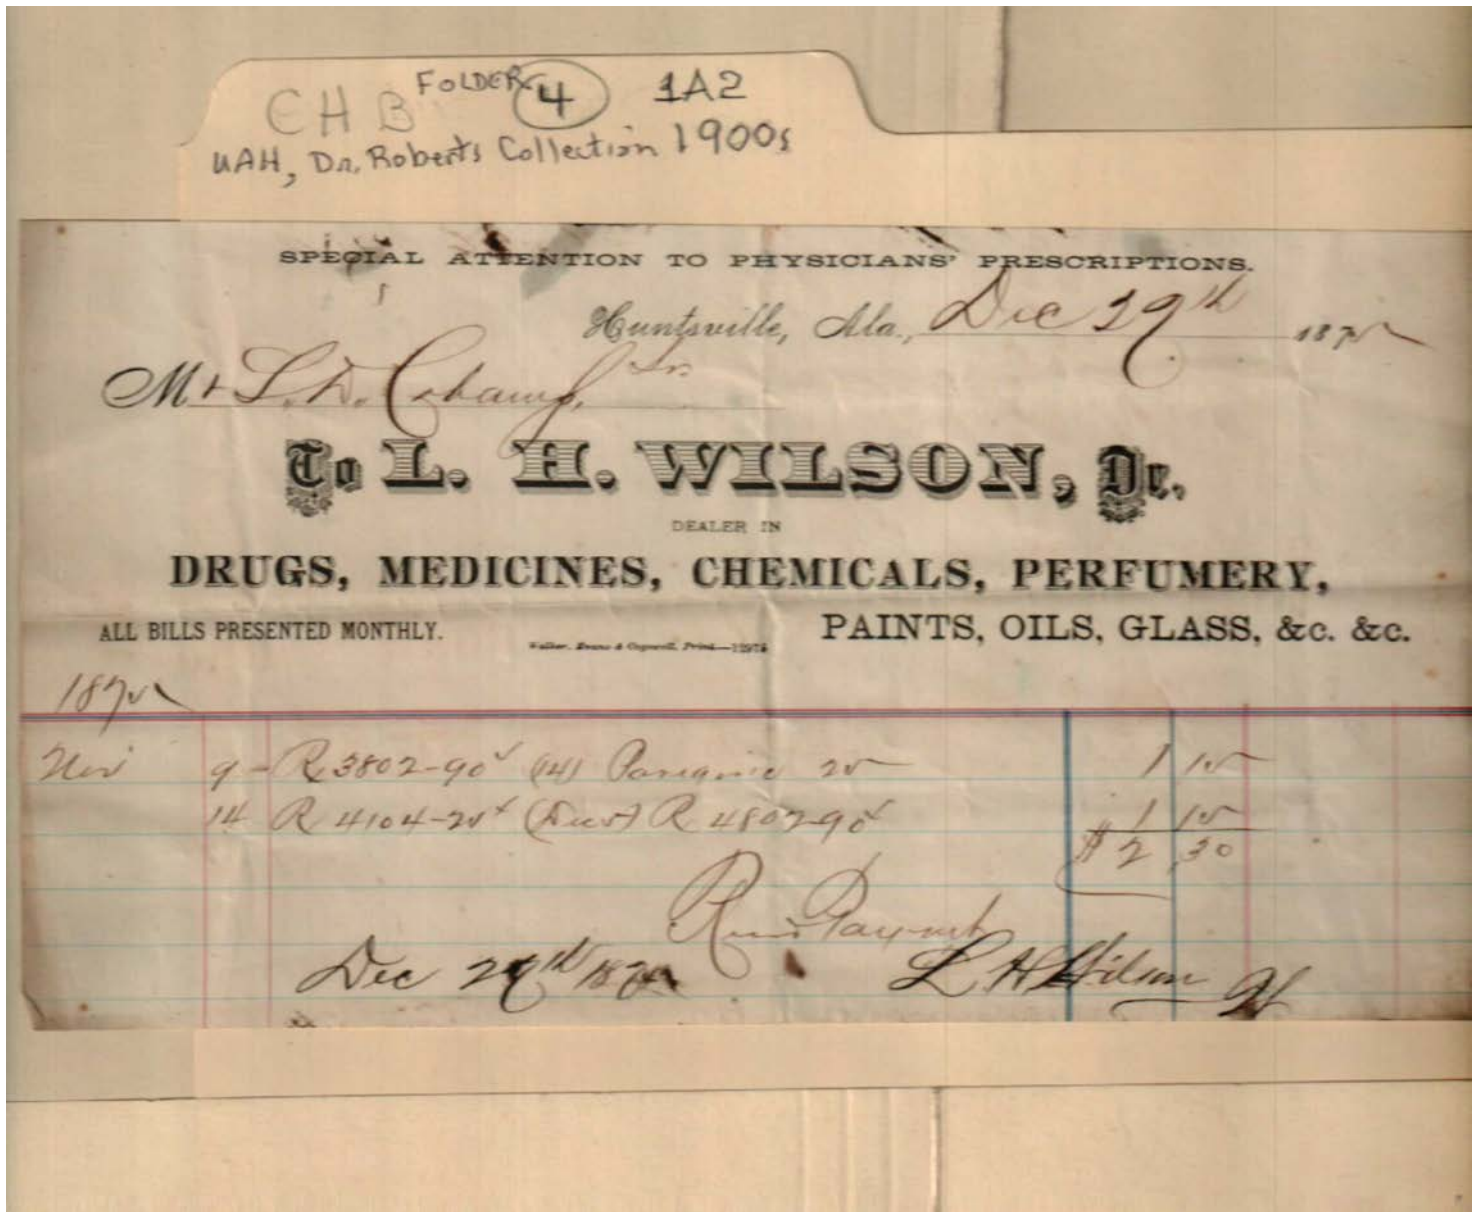 FOLDER 4 1A2
CHB
UAH, Dr. Roberts Collection 1900s
SPECIAL ATTENTION TO PHYSICIANS' PRESCRIPTIONS.
Huntsville, Ala., Dec 29th 187
Mr L. D.
To L. H. WILSON, Dr.
DEALER IN
DRUGS, MEDICINES, CHEMICALS, PERFUMERY,
ALL BILLS PRESENTED MONTHLY. PAINTS, OILS, GLASS, &c. &c.
Walker, Evans & Cogswell, Print.
187
Nov 9 - R 3802-90 (14) Paregoric 25 1 15
14 R 4104-25 R 4802-90 1 15
$ 2 30
Payment
Dec 29th 187 L H Wilson